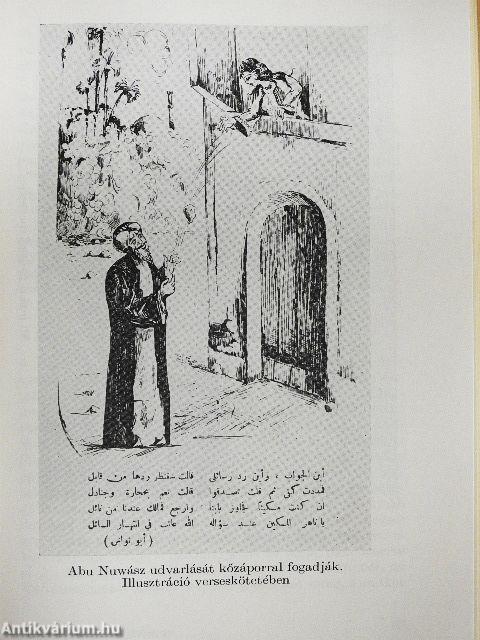 أين الجواب ، وأين رد رسائلى    قالت ستنظر ردها من قابل
فمددت كفى ثم قلت تصدقوا    قالت نعم بحجارة وجنادل
ان كنت مسكيناً فجاوز بابنا    وارجع فمالك عندنا من نائل
ياناهر المسكين عند سؤاله    الله عاتب فى انتهار السائل
( أبو نواس )
Abu Nuwász udvarlását kőzáporral fogadják.
Illusztráció verseskötetében
Antikvárium.hu